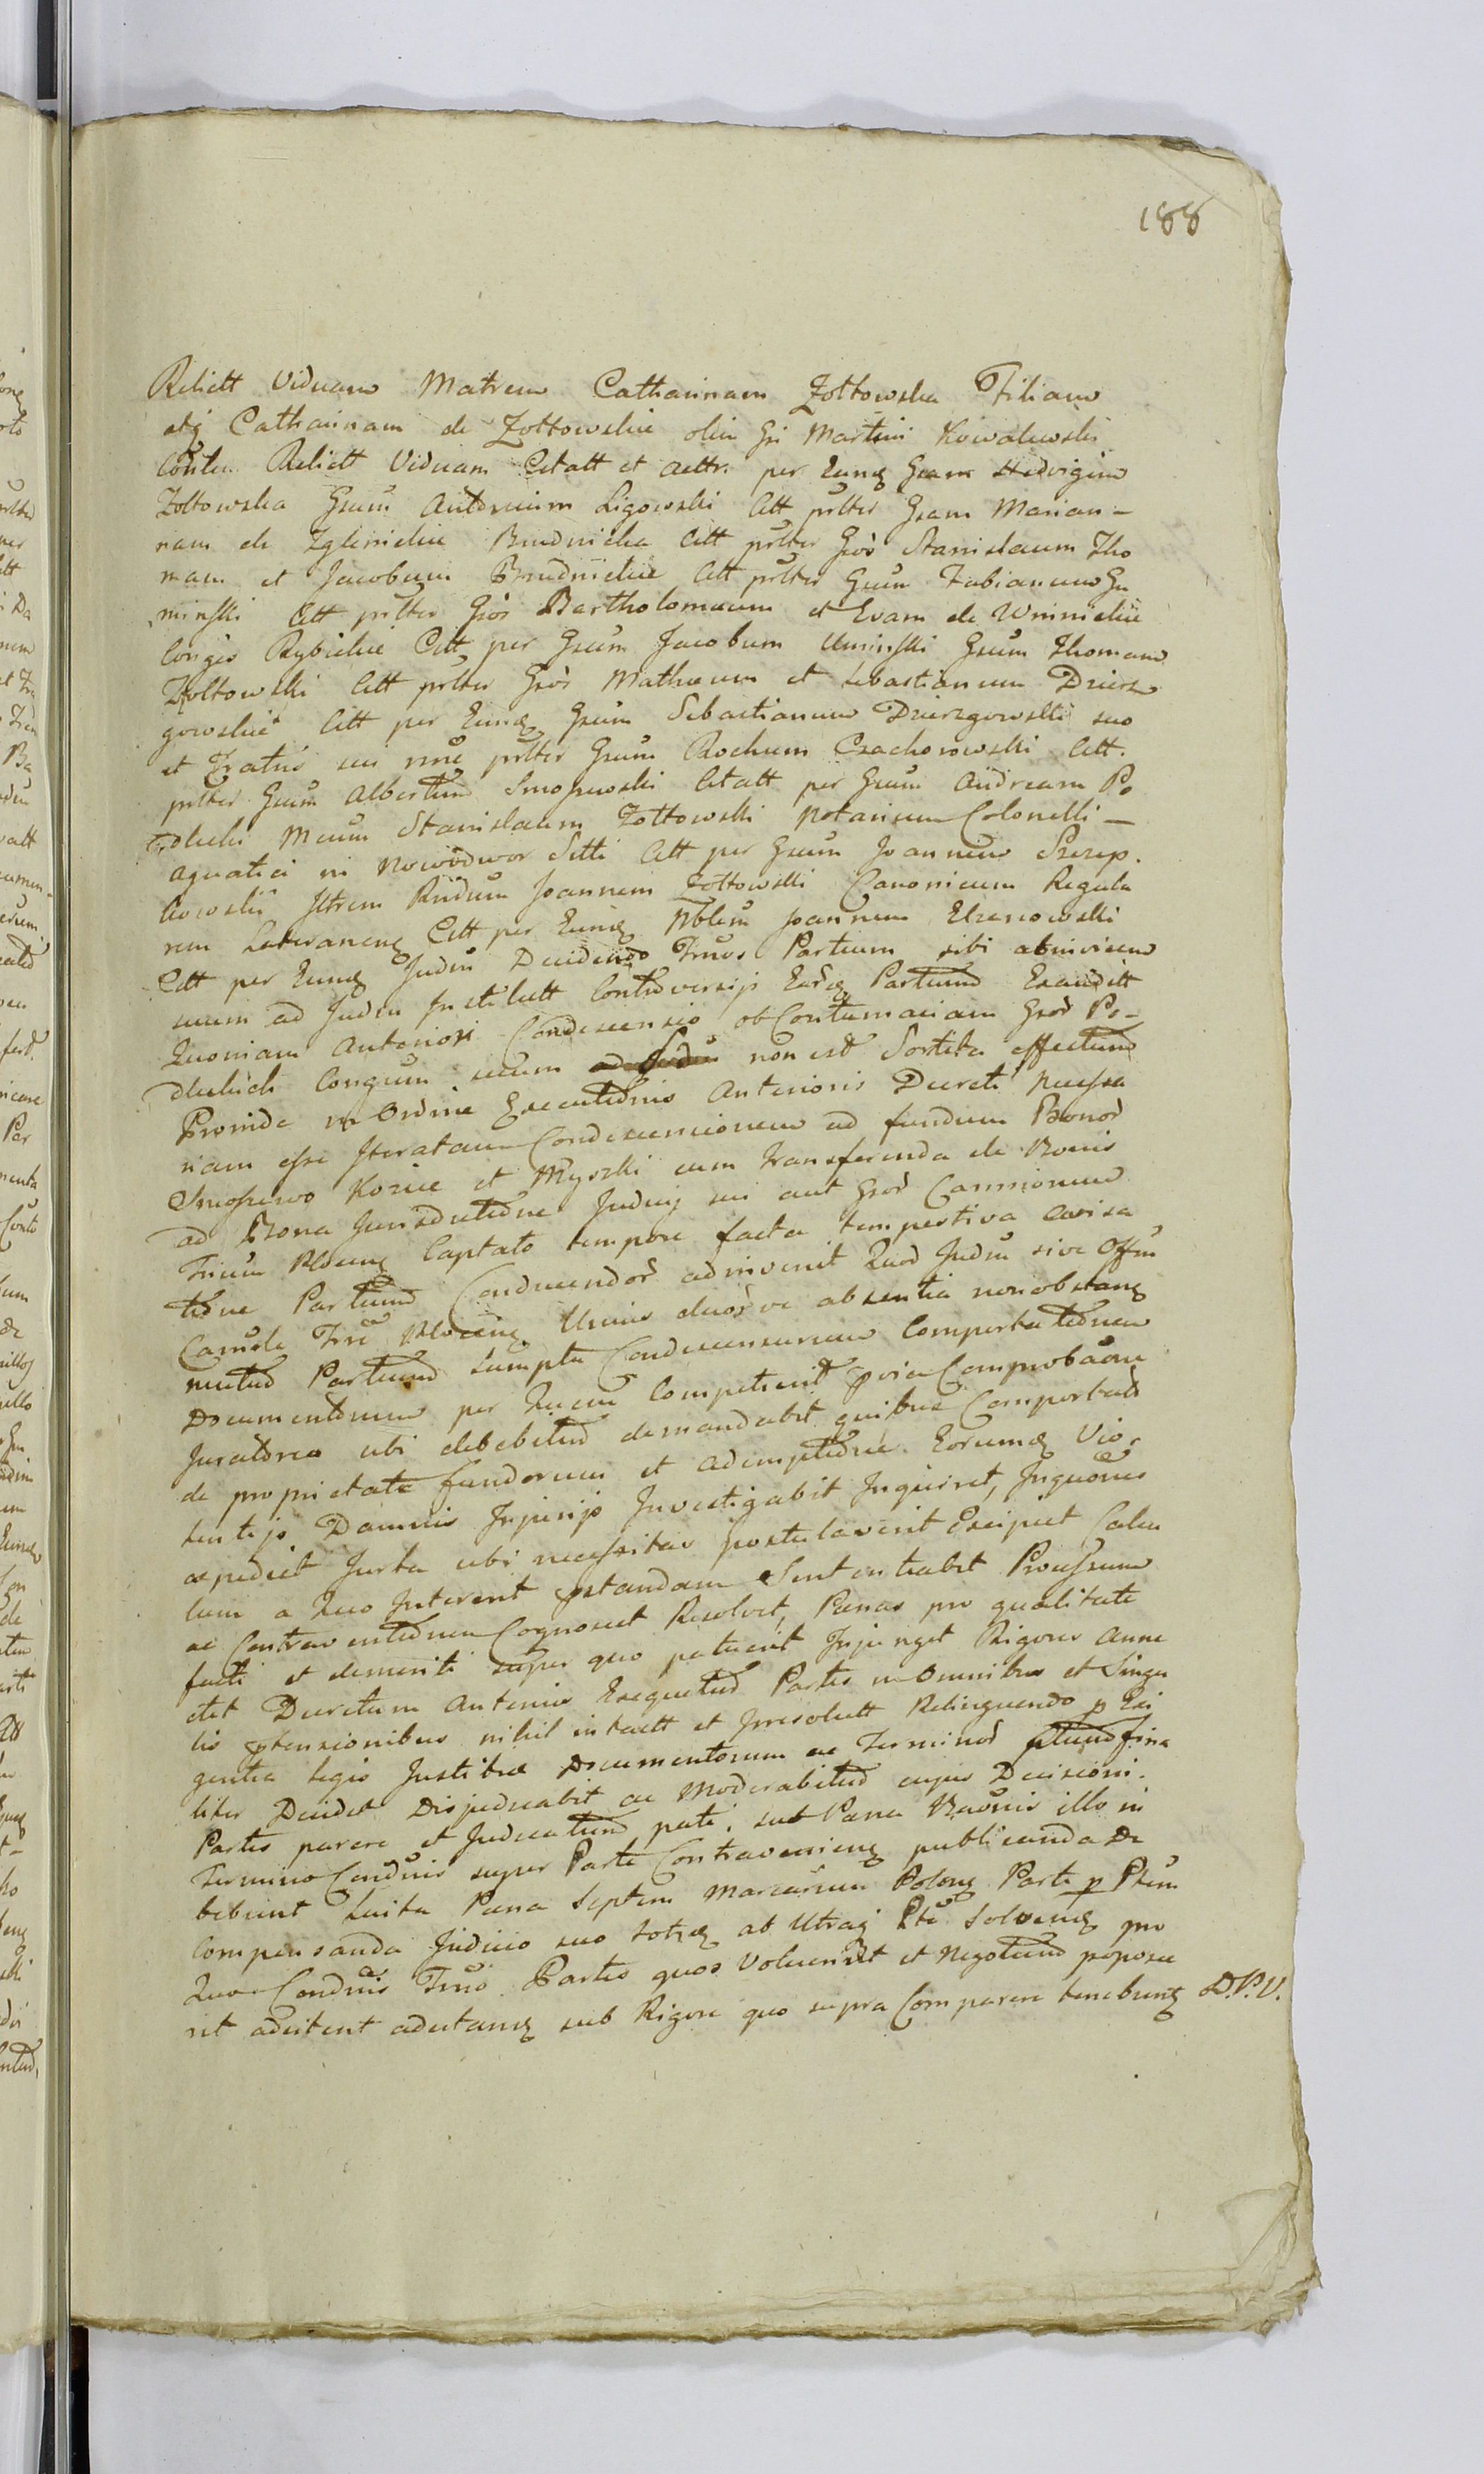 188
Relictt Viduam Matrem Catharinam Zołtowska Filiam
atq Catharinam de Zołtowskie olim Gsi Martini Kowalewski
Consten Relictt Viduam Citatt et actt. per Eunq Gsam Hedvigim
Zołtowska Gsum Antonium Ligowski Citt prlter Gsam Marian-
nam de Zglinickie Brudnicka Citt prlter Gsos Stanislaum Tho
mam et Jacobum Brudnickie Citt prlter Gsum Fabianum Gu
minski Citt prlter Gsos Bartholomaeum et Evam de Uminskie
Conges Rybickie Citt per Gsum Jacobum Uminski Gsum Thomam
Zołtowski Citt prlter Gsos Mathaeum et Sebastianum Dzierz
gowskie Citt per Eunq Gsum Sebastianum Dzierzgowski suo
et Fratris sui nne prlter Gsum Rochum Czachorowski Citt.
prlter Gsum Albertum Smoszewski Citatt per Gsum Andream Po
dlecki Mcum Stanislaum Zołtowski Notarium Colonelli-
aquatici in Nowodwor Sitti Citt per Gsum Joannem Szczep.
kowski Item Rndum Joannem Zołtowski Canonicum Regula
rem Lateranenq Citt per Eunq Nblem Joannem Elzanowski
Citt per Eunq Judm Decidendo Trnos Partium sibi abinvicem
suum ad Judm Institutt Controversijs Earq Partium Exauditt
Quoniam Anteriori Condescensio ob Contumaciam Gsor Po-
dleckich Congum suum non est Sortita effectum
Proinde in Ordine Executionis Anterioris Decreti necessa
riam esse Iteratam Condescensionem ad fundum Bonor
Smoszewo Kozice et Myszki cum transferenda de Bonis
ad Bona Jurisdictione Judicij sui aut Gsor Camrionum
Trium Plocenq Captato tempore facta tempestiva avisa
tione Partium Conducendor adinvenit Quod Judm sive Offm
Camrle Trre Plocenq Unius duorve absentia non obstanq
nutus Partium Sumptu Condescensurum Comportationem
Documentorum per Quem Competierit pvia Comprobaone
Juratorea ubi debebitur demandabit quibus Comportatis
de proprietate fundorum et ademptione Eorumq Vio.
lentijs Damnis Injurijs Investigabit Inquiret, Inquones
expediet Jurta ubi necessitas postulaverit Excipiet Calcu
lum a Quo Interent pstandam Sententiabit Processum
ac Contraventionem Cognoscet Resolvet, Panas pro qualitate
facti et demeriti super quo patuerit Injunget Rigores Anne
ctet Decretum Anterius Exequetur Partes in Omnibus et Singu
lis ptensionibus nihil intactt et Irresolutt Relinquendo p Exi
gentia Legis Justitiae Documentorum ac Terminor fina
liter Decidet Disjudicabit ac Moderabitur cujus Decisioni.
Partes parere et Judicatum pati, sub Pana Baonis illo in
Termino Condnis super Parte Contravenienq publicanda De
bebunt Luita Pana Septem Marcarum Polonq Parte p Ptem
Compensanda Judicio suo totq ab Utraq Pte Solvenq pro
Quo Condnis Trno Partes quos Voluerint et Negotium poposce
rit adcitent adcitanq sub Rigore quo supra Comparere tenebunq D.P.V.